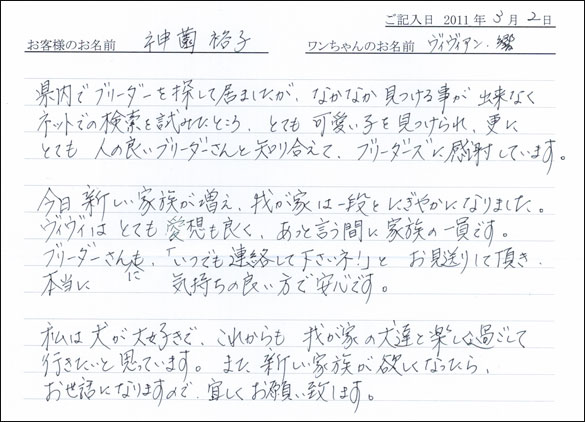 ご記入日 2011年3月2日
お客様のお名前 神薗 裕子 ワンちゃんのお名前 ヴィヴィアン・響
県内でブリーダーを探して居ましたが、なかなか見つける事が出来なく
ネットでの検索を試みたところ、とても可愛い子を見つけられ、更に
とても人の良いブリーダーさんと知り合えて、ブリーダーズに感謝しています。
今日新しい家族が増え、我が家は一段とにぎやかになりました。
ヴィヴィはとても愛想も良く、あっと言う間に家族の一員です。
ブリーダーさんも、「いつでも連絡して下さいネ!」とお見送りして頂き、
本当に 気持ちの良い方で安心です。
私は犬が大好きで、これからも我が家の犬達と楽しく過ごして
行きたいと思っています。また新しい家族が欲しくなったら、
お世話になりますので、宜しくお願い致します。